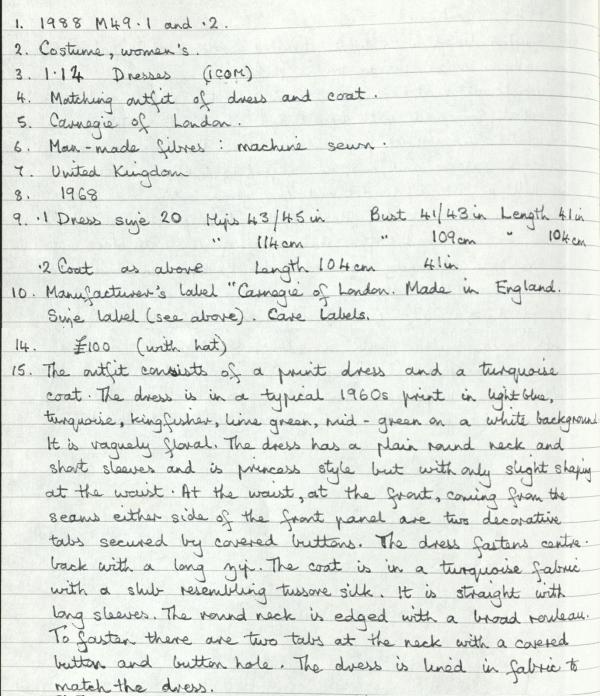 1. 1988 M49.1 and .2.
2. Costume, women's.
3. 1.12 Dresses (ICOM)
4. Matching outfit of dress and coat.
5. Carnegie of London.
6. Man-made fibres : machine sewn.
7. United Kingdom
8. 1968
9. .1 Dress size 20 Hips 43/45 in Bust 41/43 in Length 41 in
" 114cm " 109cm " 104cm
.2 Coat as above Length 104cm 41in
10. Manufacturer's label "Carnegie of London. Made in England.
Size label (see above). Care Labels.
14. £100 (with hat)
15. The outfit consists of a print dress and a turquoise
coat. The dress is in a typical 1960s print in light blue,
turquoise, kingfisher, lime green, mid-green on a white background
It is vaguely floral. The dress has a plain round neck and
short sleeves and is princess style but with only slight shaping
at the waist. At the waist, at the front, coming from the
seams either side of the front panel are two decorative
tabs secured by covered buttons. The dress fastens centre-
back with a long zip. The coat is in a turquoise fabric
with a slub resembling tussore silk. It is straight with
long sleeves. The round neck is edged with a broad rouleau.
To fasten there are two tabs at the neck with a covered
button and button hole. The dress is lined in fabric to
match the dress.